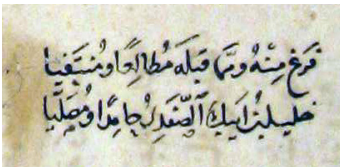 فرغ منه ومما قبله مطالعا ومنتقيا
خليل بن ايبك الصفدي حامدا ومصليا